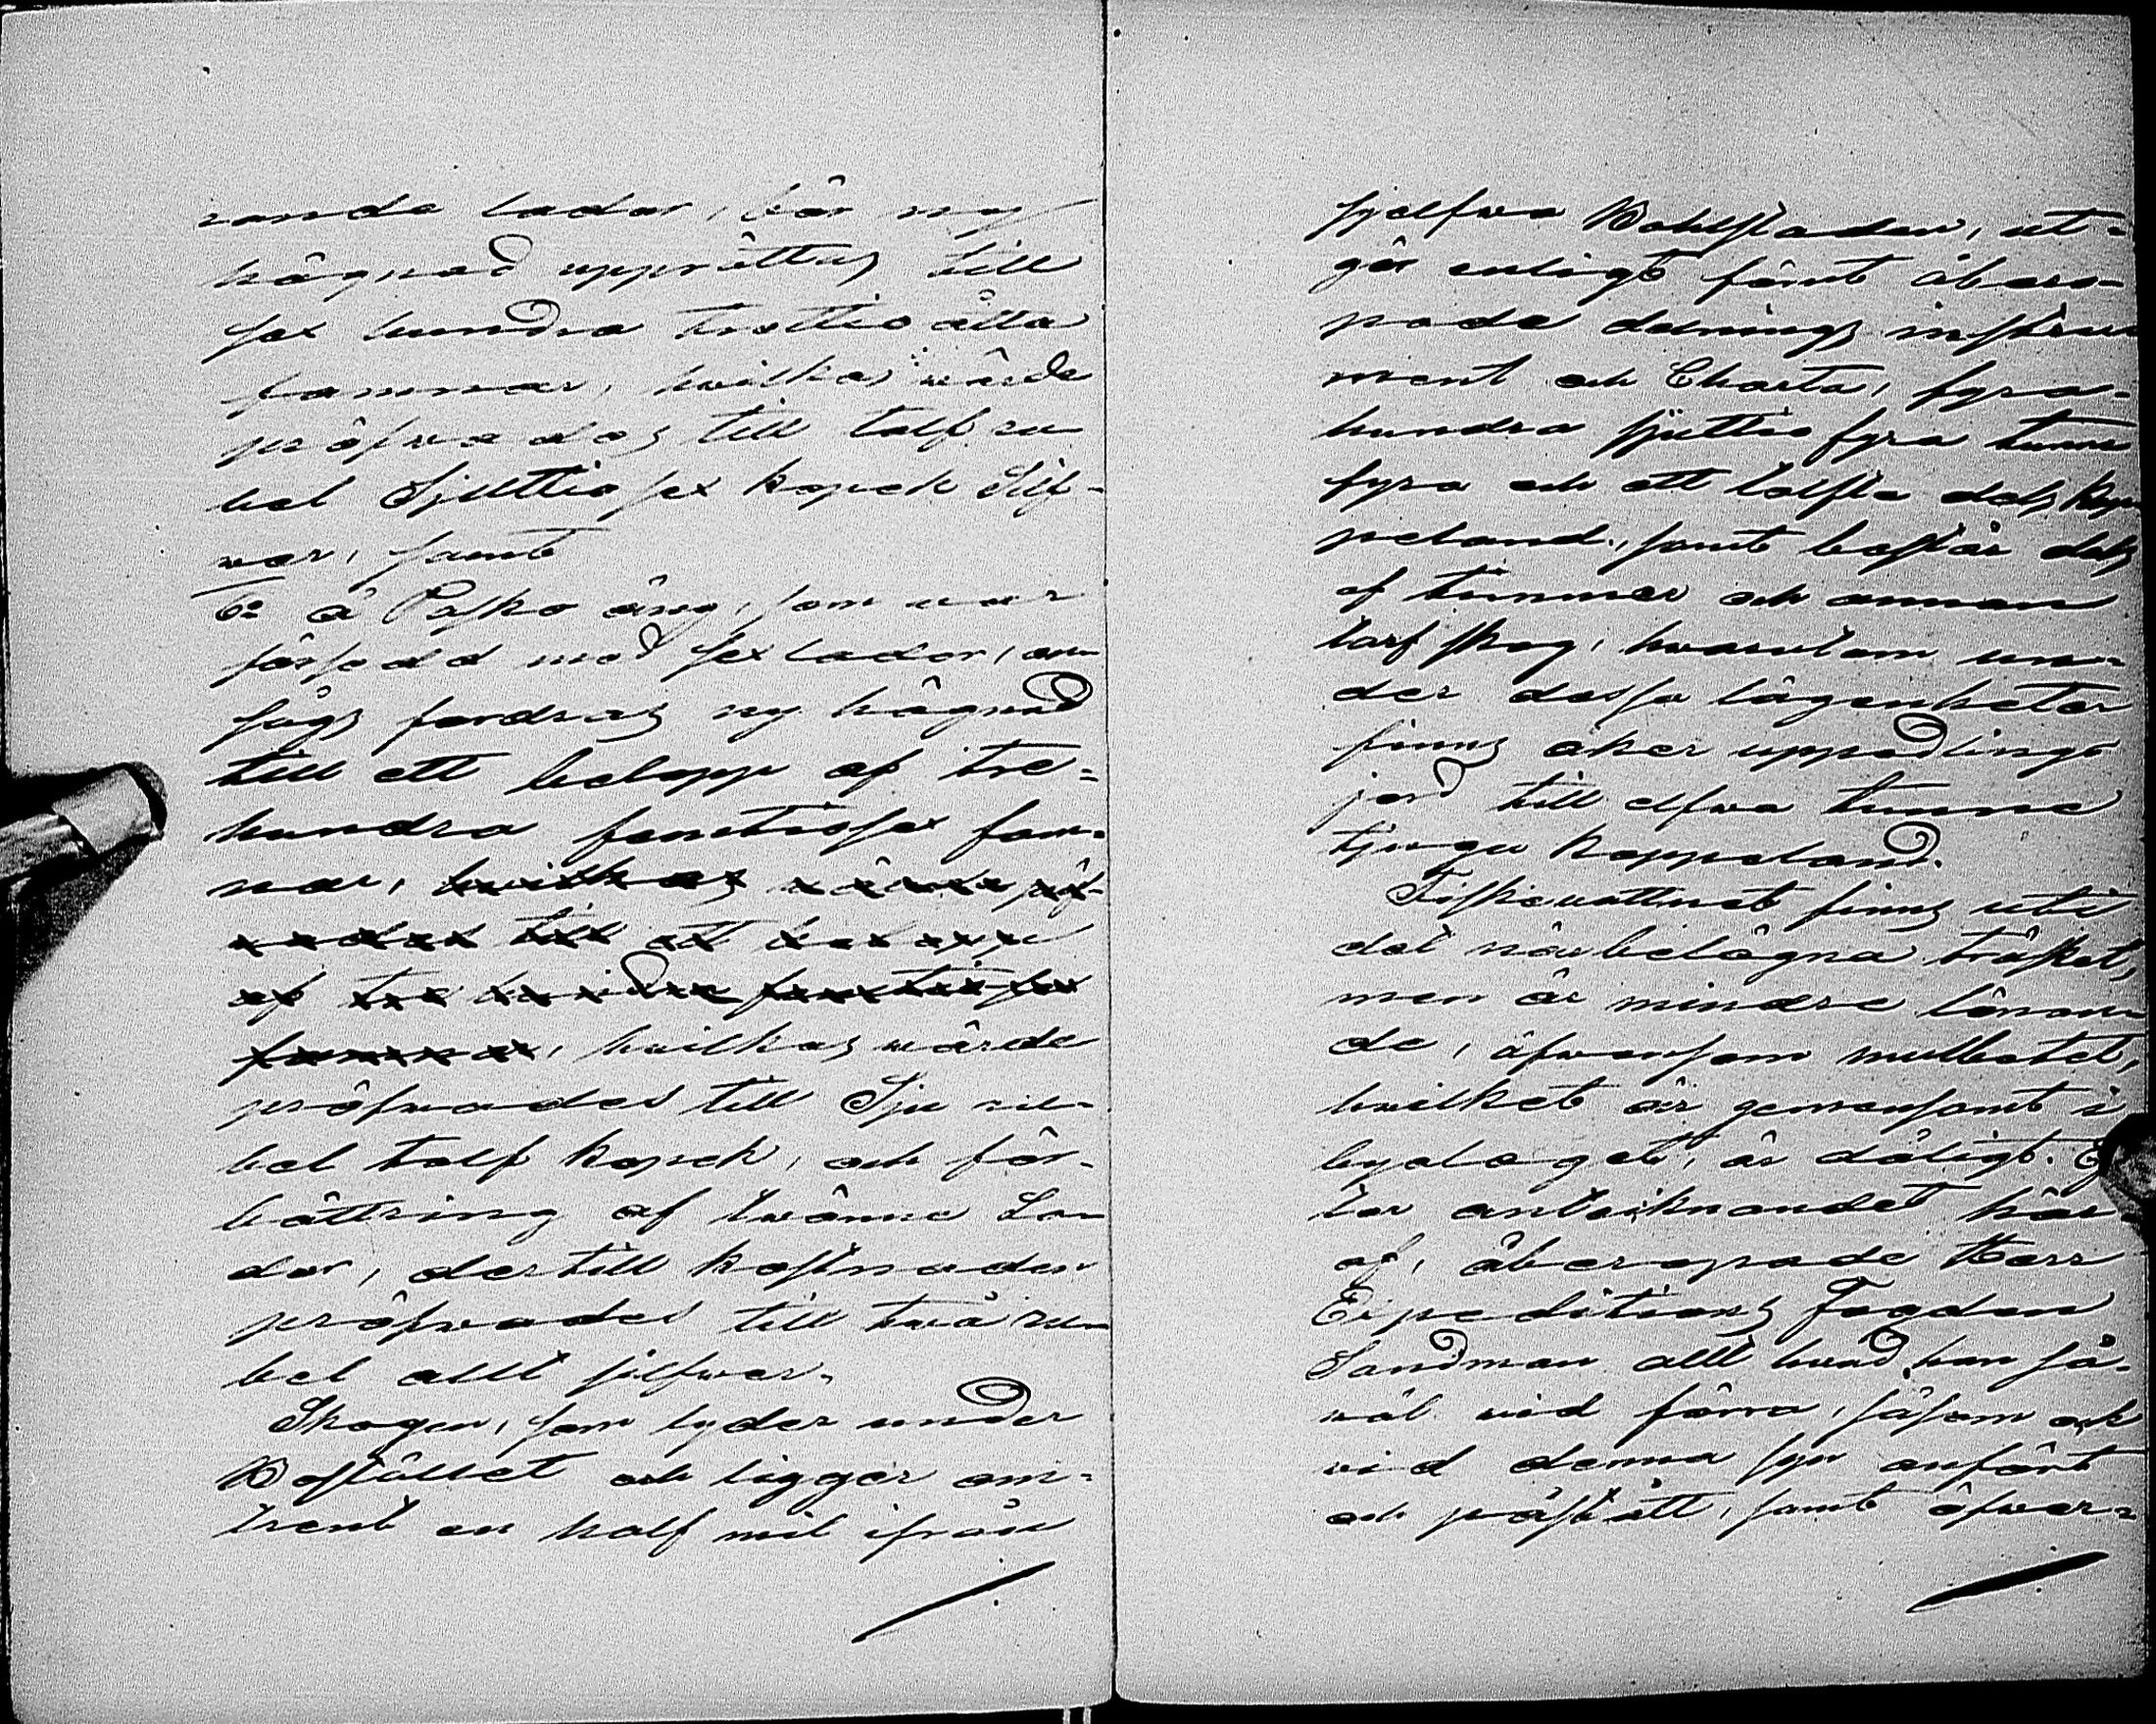 rande lador, bör ny
hägnad upprättas till
sex hundra trettio åtta
famnar, hvilkas värde
pröfvades till tolf ru-
bel Sjuttiosex kopek Silf-
ver, samt
6:o å Pasko äng, som var
försedd med sex lador, an-
sågs fordras ny hägnad
till ett belopp af tre-
hundra femtiosex fam-
nar, hvilkas värde pröf-
vades till ett belopp
af tre hundra femtiosex
famnar, hvilkas värde
pröfvades till Sju ru-
bel tolf kopek, och för-
bättring af tvänne La-
dor, dertill kostnaden
pröfvades till två ru-
bel allt silfver.
Skogen, som lyder under
Bostället och ligger om-
trent en half mil ifrån
sjelfva Bohlstaden, ut-
gör enligt samt åbero-
pade delnings instru-
ment och Charta, fyra-
hundra sjuttio fyra tunne
fyra och ett tolfte dels kap-
peland, samt består dels
af timmer och annan
tarf skog, hvarutom un-
der dessa lägenheter
finns åker uppodlings
jord till elfva tunne
tjugu kappeland.
Fiskevattnet finns uti
det närbelägna träsket,
men är mindre lönan-
de, äfvensom mulbetet,
hvilket är gemensamt i
byalaget, är dåligt. Ef-
ter antecknandet här-
af, åberopade Herr
Expeditions Fogden
Sandman allt hvad han så-
väl vid förra, såsom ock
vid denna syn anfört
och påstått, samt öfver-